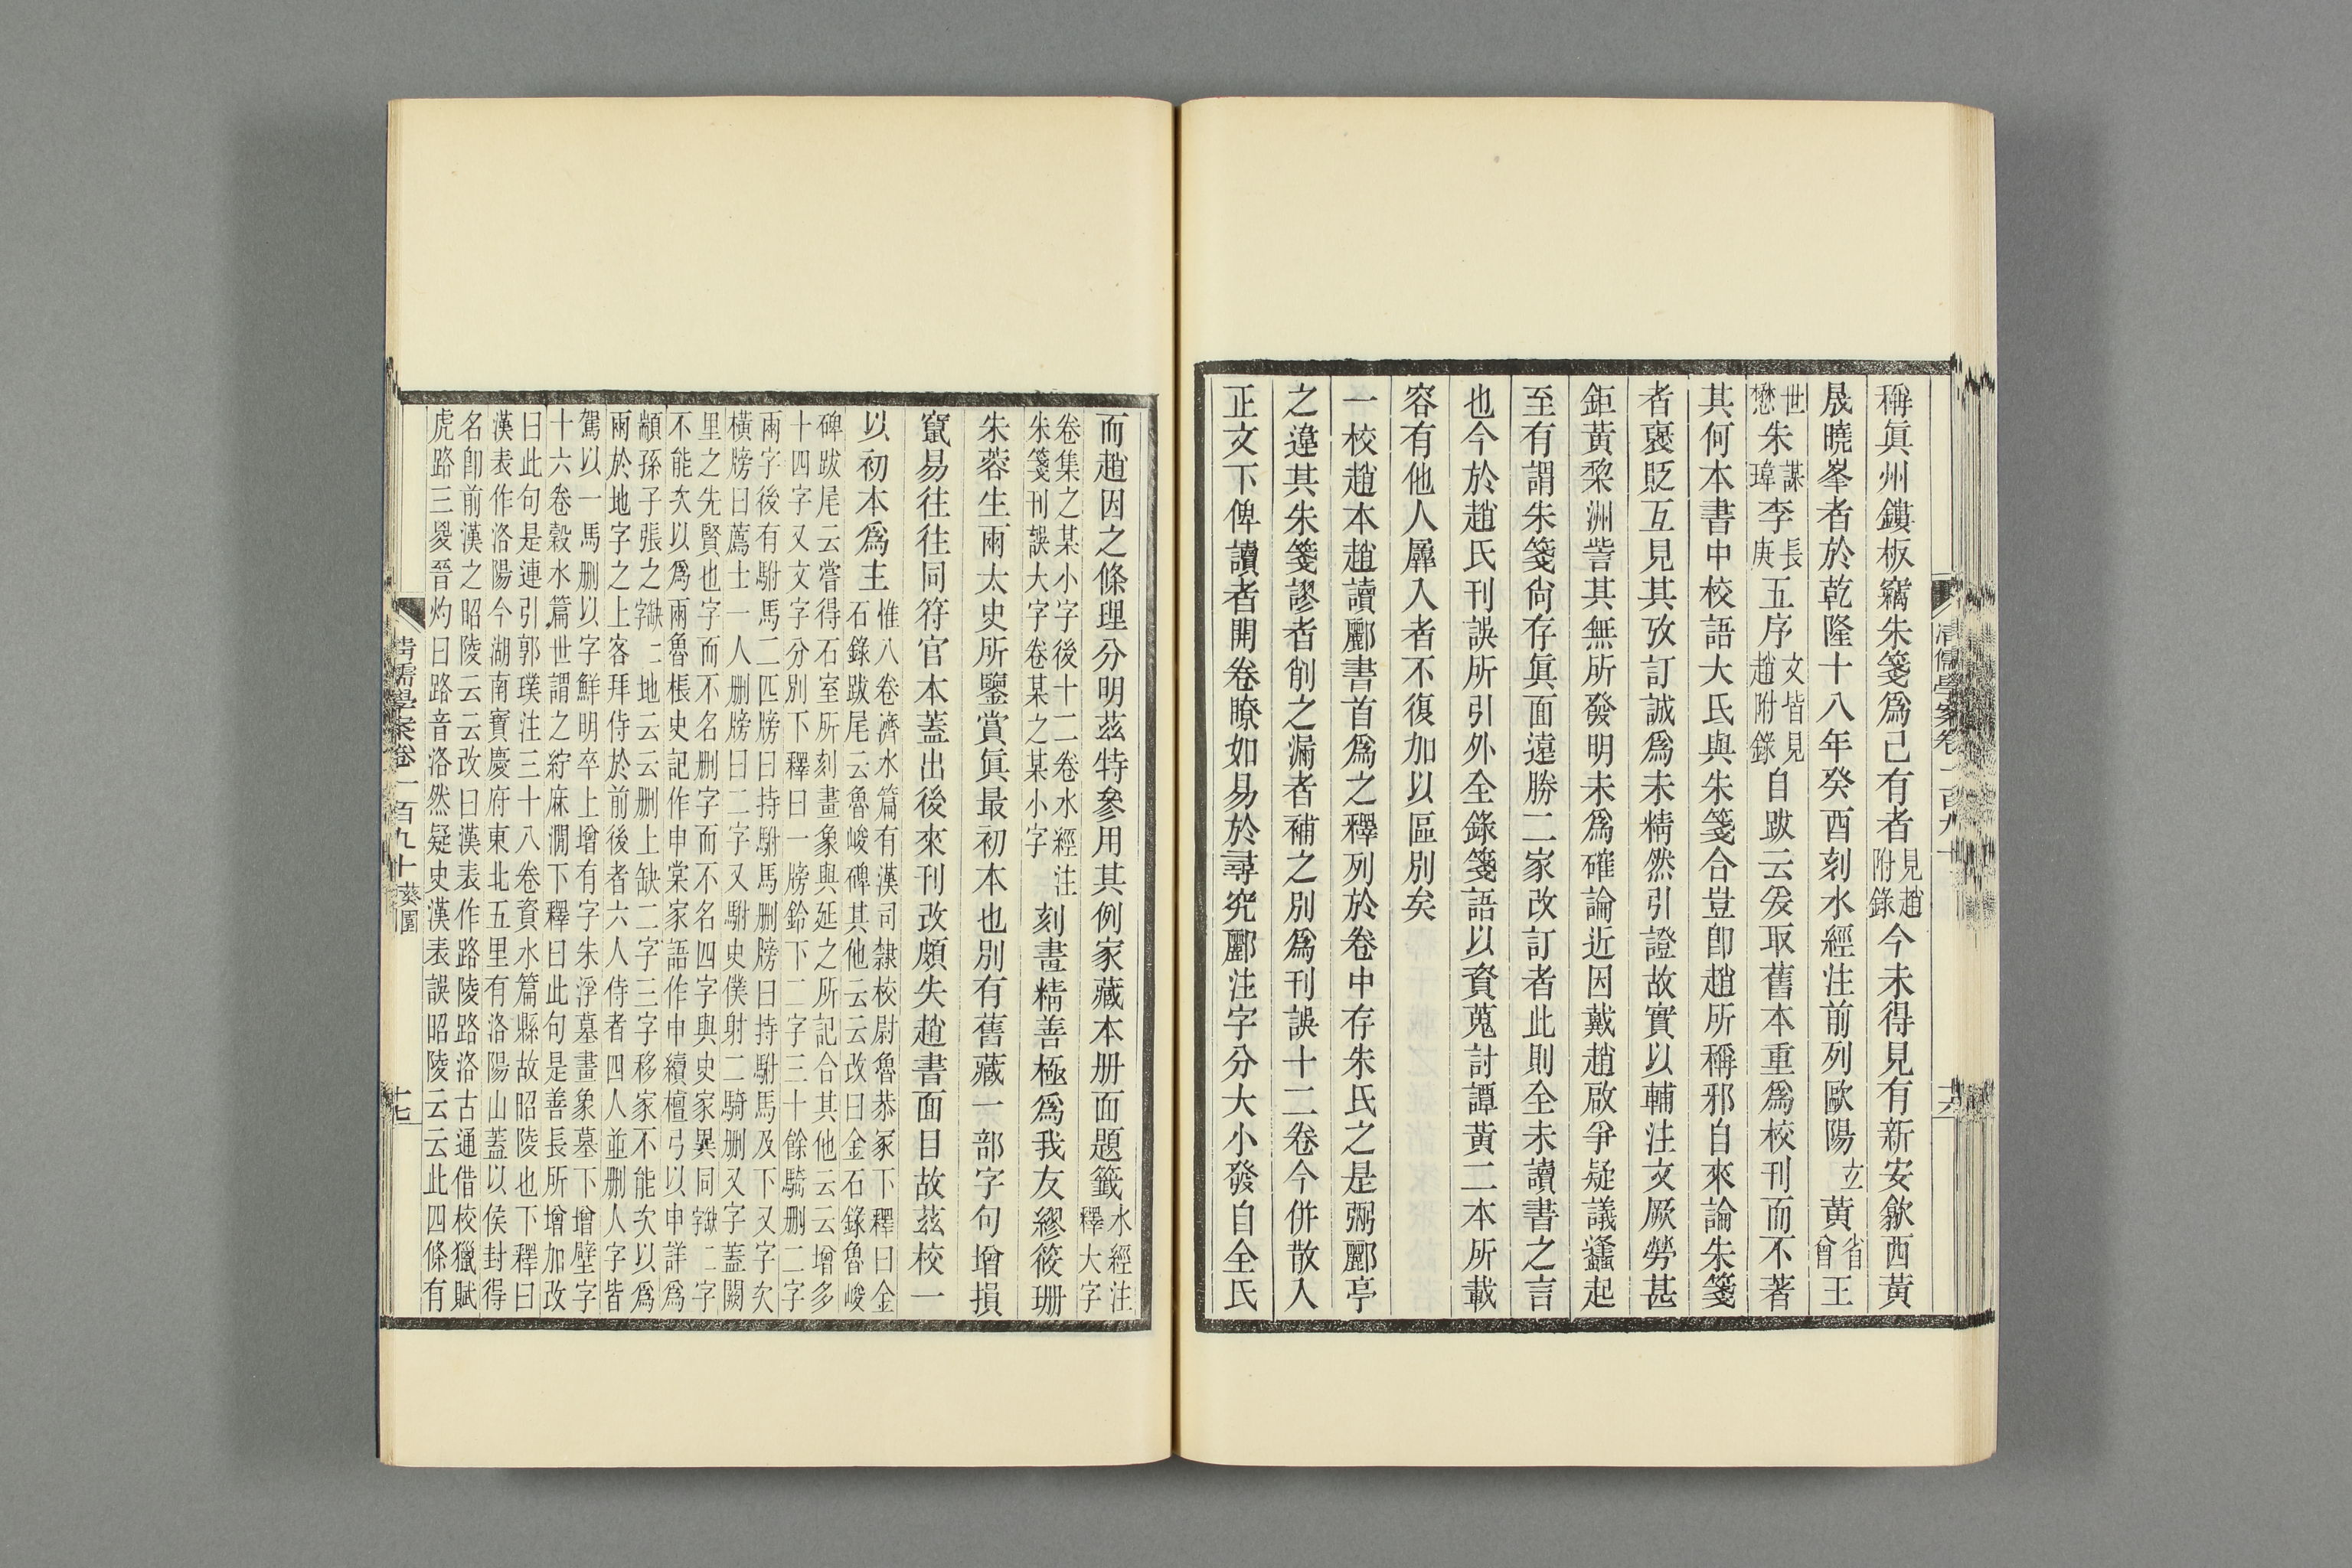 稱眞州鏤板竊朱箋爲己有者見趙附錄今未得見有新安歙西黃
晟曉峯者於乾隆十八年癸酉刻水經注前列歐陽立黃省曾王
世懋朱謀㙔李長庚五序文皆見趙附錄自跋云爰取舊本重爲校刊而不著
其何本書中校語大氐與朱箋合豈卽趙所稱邪自來論朱箋
者褒貶互見其攷訂誠爲未精然引證故實以輔注文厥勞甚
鉅黃棃洲訾其無所發明未爲確論近因戴趙啟爭疑議蠭起
至有謂朱箋尙存眞面遠勝二家改訂者此則全未讀書之言
也今於趙氏刊誤所引外全錄箋語以資蒐討譚黃二本所載
容有他人羼入者不復加以區別矣
一校趙本趙讀酈書首爲之釋列於卷中存朱氏之是弼酈亭
之違其朱箋謬者削之漏者補之別爲刊誤十二卷今併散入
正文下俾讀者開卷瞭如易於尋究酈注字分大小發自全氏
而趙因之條理分明茲特參用其例家藏本册面題籤水經注釋大字
卷集之某小字後十二卷水經注朱箋刊誤大字卷某之某小字刻畫精善極爲我友繆筱珊
朱蓉生兩太史所鑒賞眞最初本也別有舊藏一部字句增損
竄易往往同符官本蓋出後來刊改頗失趙書面目故茲校一
以初本爲主惟八卷濟水篇有漢司隸校尉魯恭冢下釋曰金
石錄跋尾云魯峻碑其他云云改曰金石錄魯峻
碑跋尾云嘗得石室所刻畫象與延之所記合其他云云增多
十四字又文字分別下釋曰一牓鈴下二字三十餘騎刪二字
兩字後有駙馬二匹牓曰持駙馬刪牓曰持駙馬及下又字次
橫牓曰薦士一人刪牓曰二字又駙史僕射二騎刪又字蓋闕
里之先賢也字而不名刪字而不名四字與史家異同缺二字
不能次以爲兩魯棖史記作申棠家語作申續檀弓以申詳爲
顓孫子張之子缺二地云云刪上缺二字三字移家不能次以爲
兩於地字之上客拜侍於前後者六人侍者四人並刪人字皆
駕以一馬刪以字鮮明卒上增有字朱浮墓畫象墓下增壁字
十六卷穀水篇世謂之紵麻澗下釋曰此句是善長所增加改
曰此句是連引郭璞注三十八卷資水篇縣故昭陵也下釋曰
漢表作洛陽今湖南寶慶府東北五里有洛陽山蓋以侯封得
名卽前漢之昭陵云云改曰漢表作路陵路洛古通借校獵賦
虎路三嵏晉灼曰路音洛然疑史漢表誤昭陵云云此四條有
清儒學案卷一百九十 葵園 十七